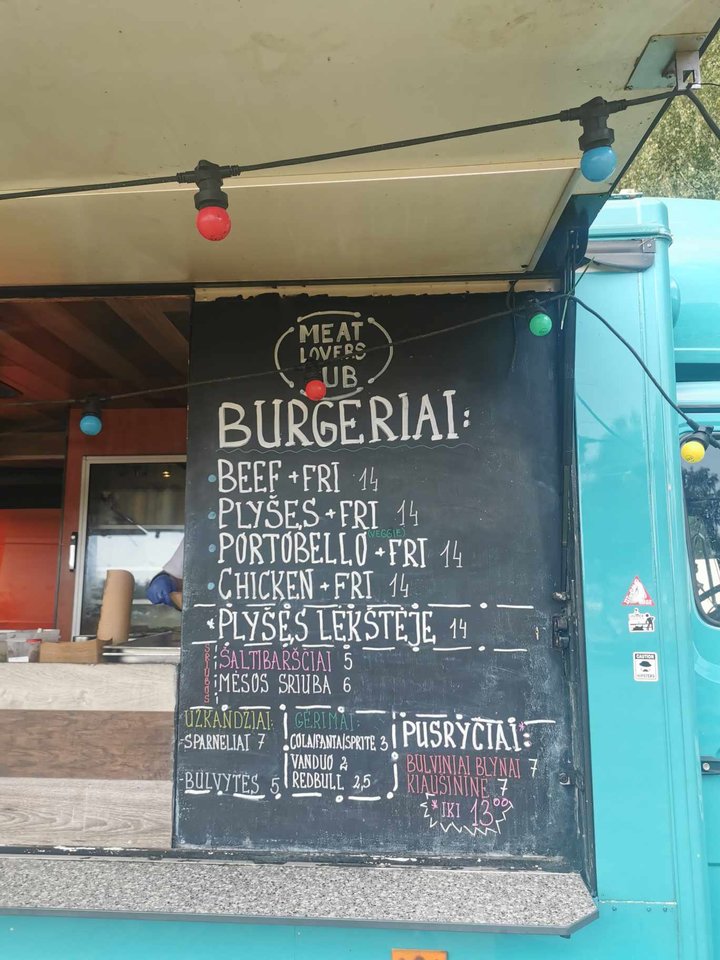 MEAT
LOVERS
UB
BURGERIAI:
BEEF + FRI 14
PLYŠĘS + FRI 14
(VEGGIE)
PORTOBELLO + FRI 14
CHICKEN + FRI 14
* PLYŠĘS LĖKŠTĖJE 14
SRIUBOS
ŠALTIBARŠČIAI 5
MĖSOS SRIUBA 6
UŽKANDŽIAI:
-SPARNELIAI 7
-BULVYTĖS 5
GĖRIMAI:
COLA/FANTA/SPRITE 3
VANDUO 2
REDBULL 2,5
PUSRYČIAI*:
BULVINIAI BLYNAI 7
KIAUŠININĖ 7
*IKI 13⁰⁰
CAUTION